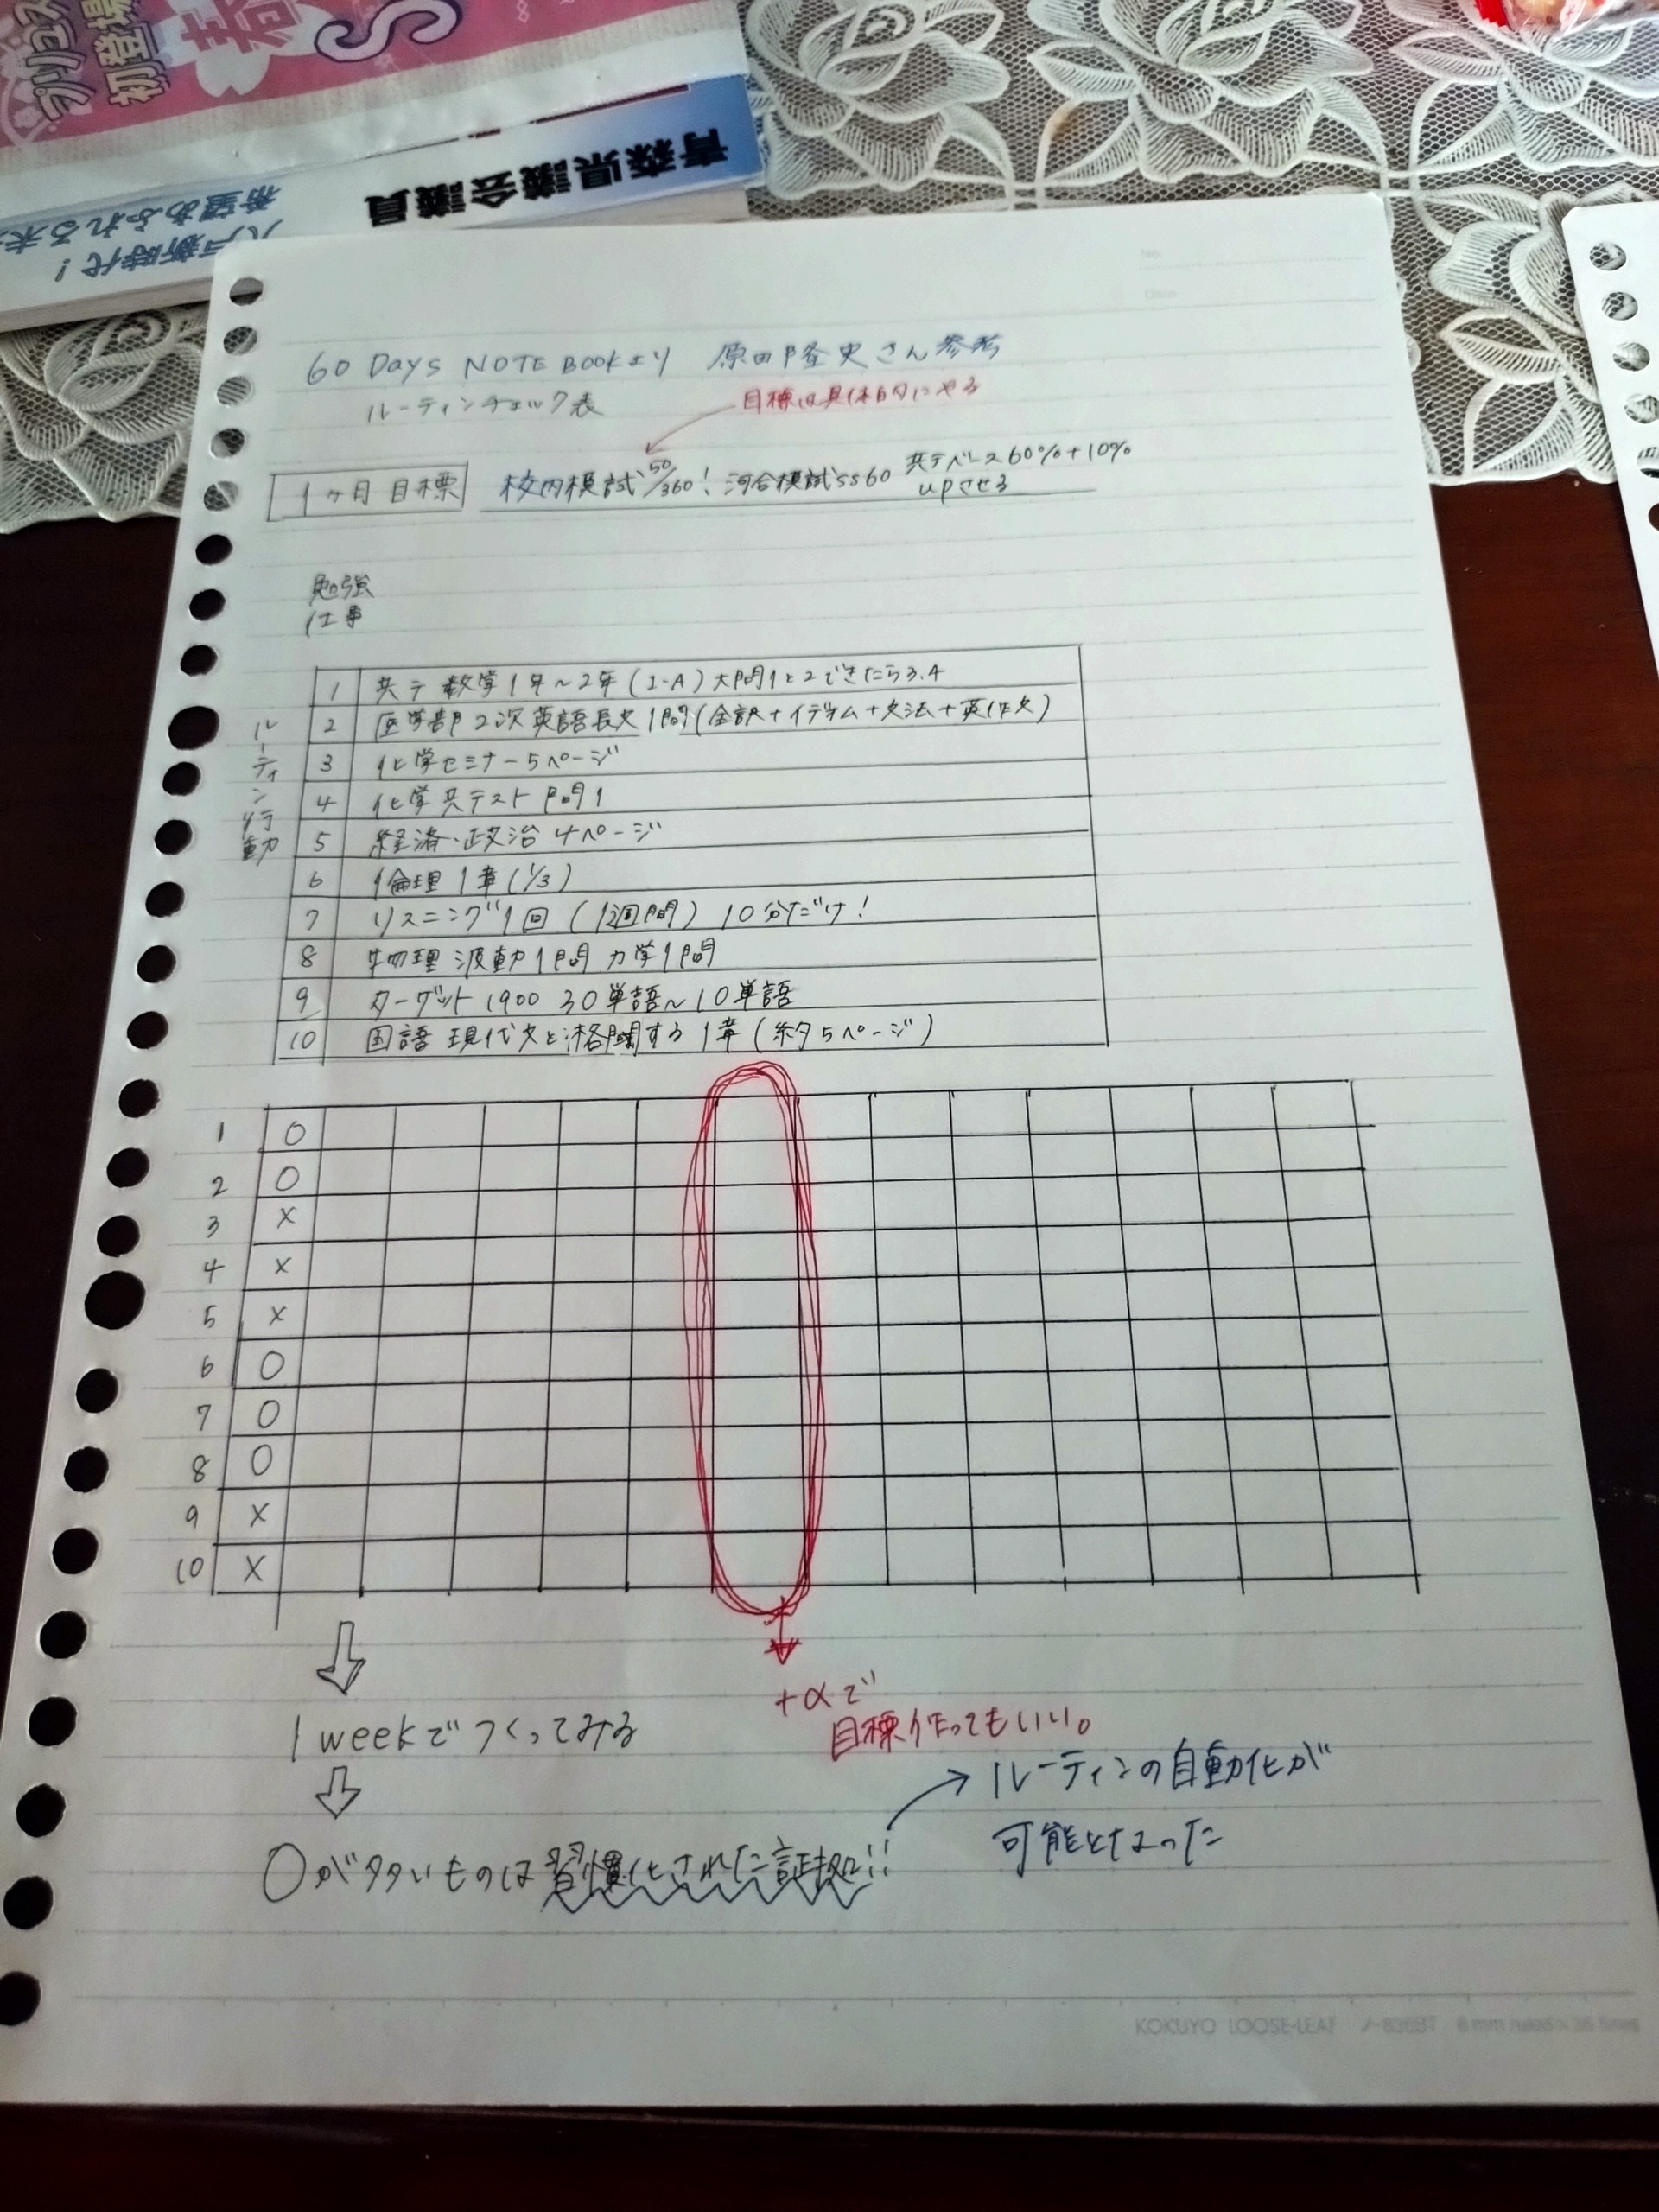 プリュス
初登場
春
S
青森県議会議員
八戸新時代!
希望あふれる未
No.
Date
60 Days NOTE BOOKより 原田隆史さん参考
ルーティンチェック表
目標は具体的にやる
1ヶ月目標 校内模試50/360! 河合模試SS60 共テベース60%+10%
upさせる
勉強
仕事
ルーティン行動
1 共テ 数学1年〜2年(I-A)大問1と2できたら3.4
2 医学部2次英語長文1問(全訳+イディオム+文法+英作文)
3 化学セミナー5ページ
4 化学共テスト 問1
5 経済・政治 4ページ
6 倫理 1章(1/3)
7 リスニング1回(1週間)10分だけ!
8 物理 波動1問 力学1問
9 ターゲット1900 30単語〜10単語
10 国語 現代文と格闘する 1章(約5ページ)
1 ○
2 ○
3 ×
4 ×
5 ×
6 ○
7 ○
8 ○
9 ×
10 ×
1weekでつくってみる
+αで
目標作ってもいい。
→ルーティンの自動化が
可能となった
○が多いものは習慣化された証拠!!
KOKUYO LOOSE-LEAF ノ-836BT 6mm ruled×36 lines